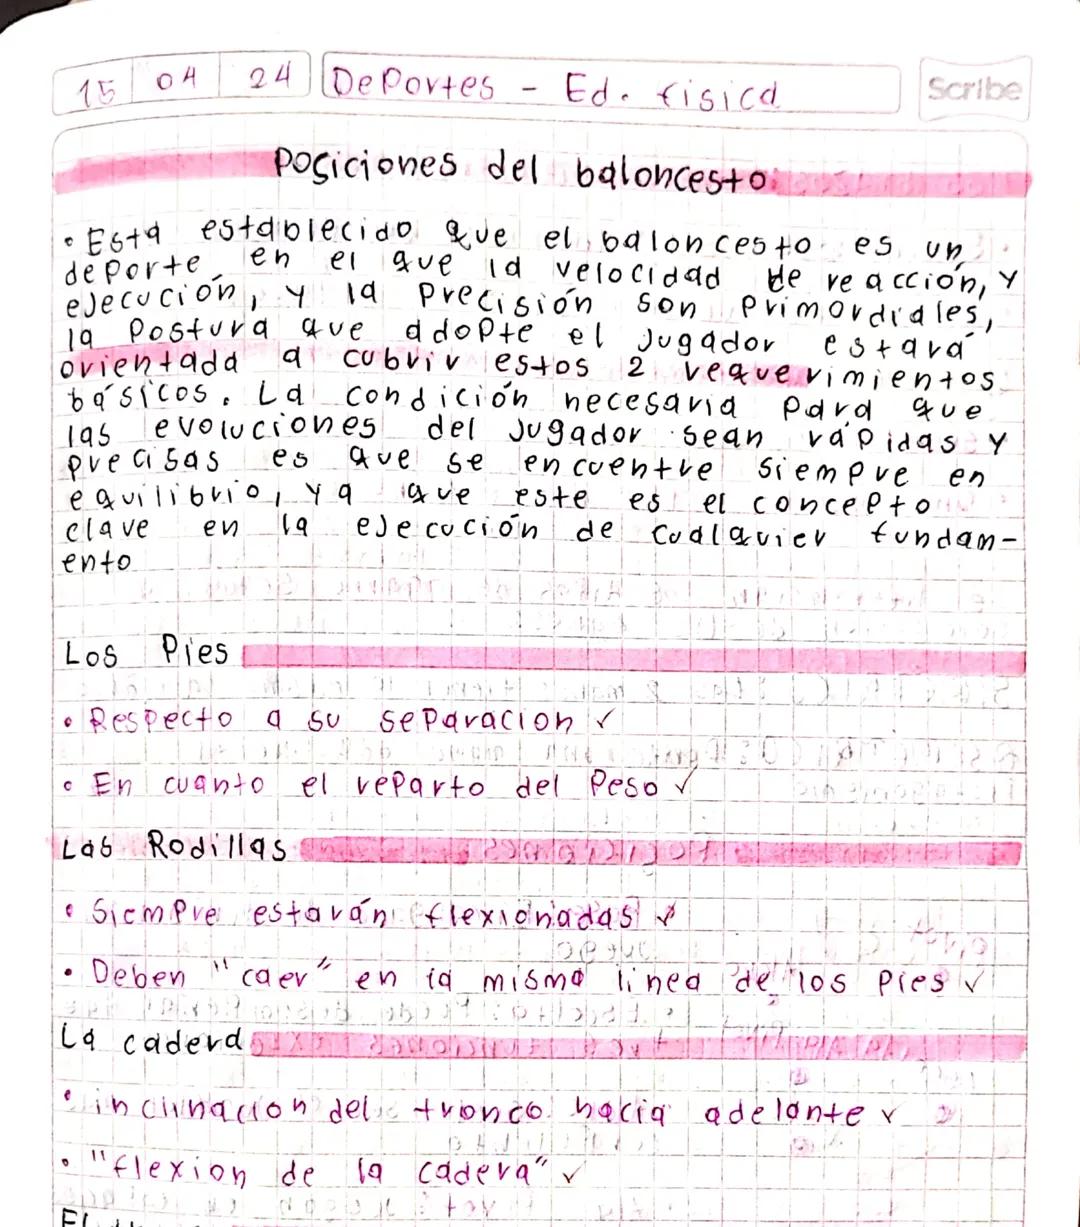 15 04 24 Deportes - Ed. fisica Scribe
Posiciones del baloncesto
• Esta establecido que el baloncesto es un
deporte en el que la velocidad de reacción, y
ejecución, y la precisión son primordiales,
la postura que adopte el jugador estará
orientada a cubrir estos 2 requerimientos
básicos. La condición necesaria para que
las evoluciones del jugador sean rápidas y
precisas es que se encuentre siempre en
equilibrio, ya que este es el concepto
clave en la ejecución de cualquier fundam-
ento
Los Pies
• Respecto a su separacion ✓
• En cuanto el reparto del peso ✓
Las Rodillas
• Siempre estarán flexionadas ✓
• Deben "caer" en la misma linea de los pies ✓
La cadera
• inclinacion del tronco hacia adelante ✓
• "flexion de la cadera" ✓
El